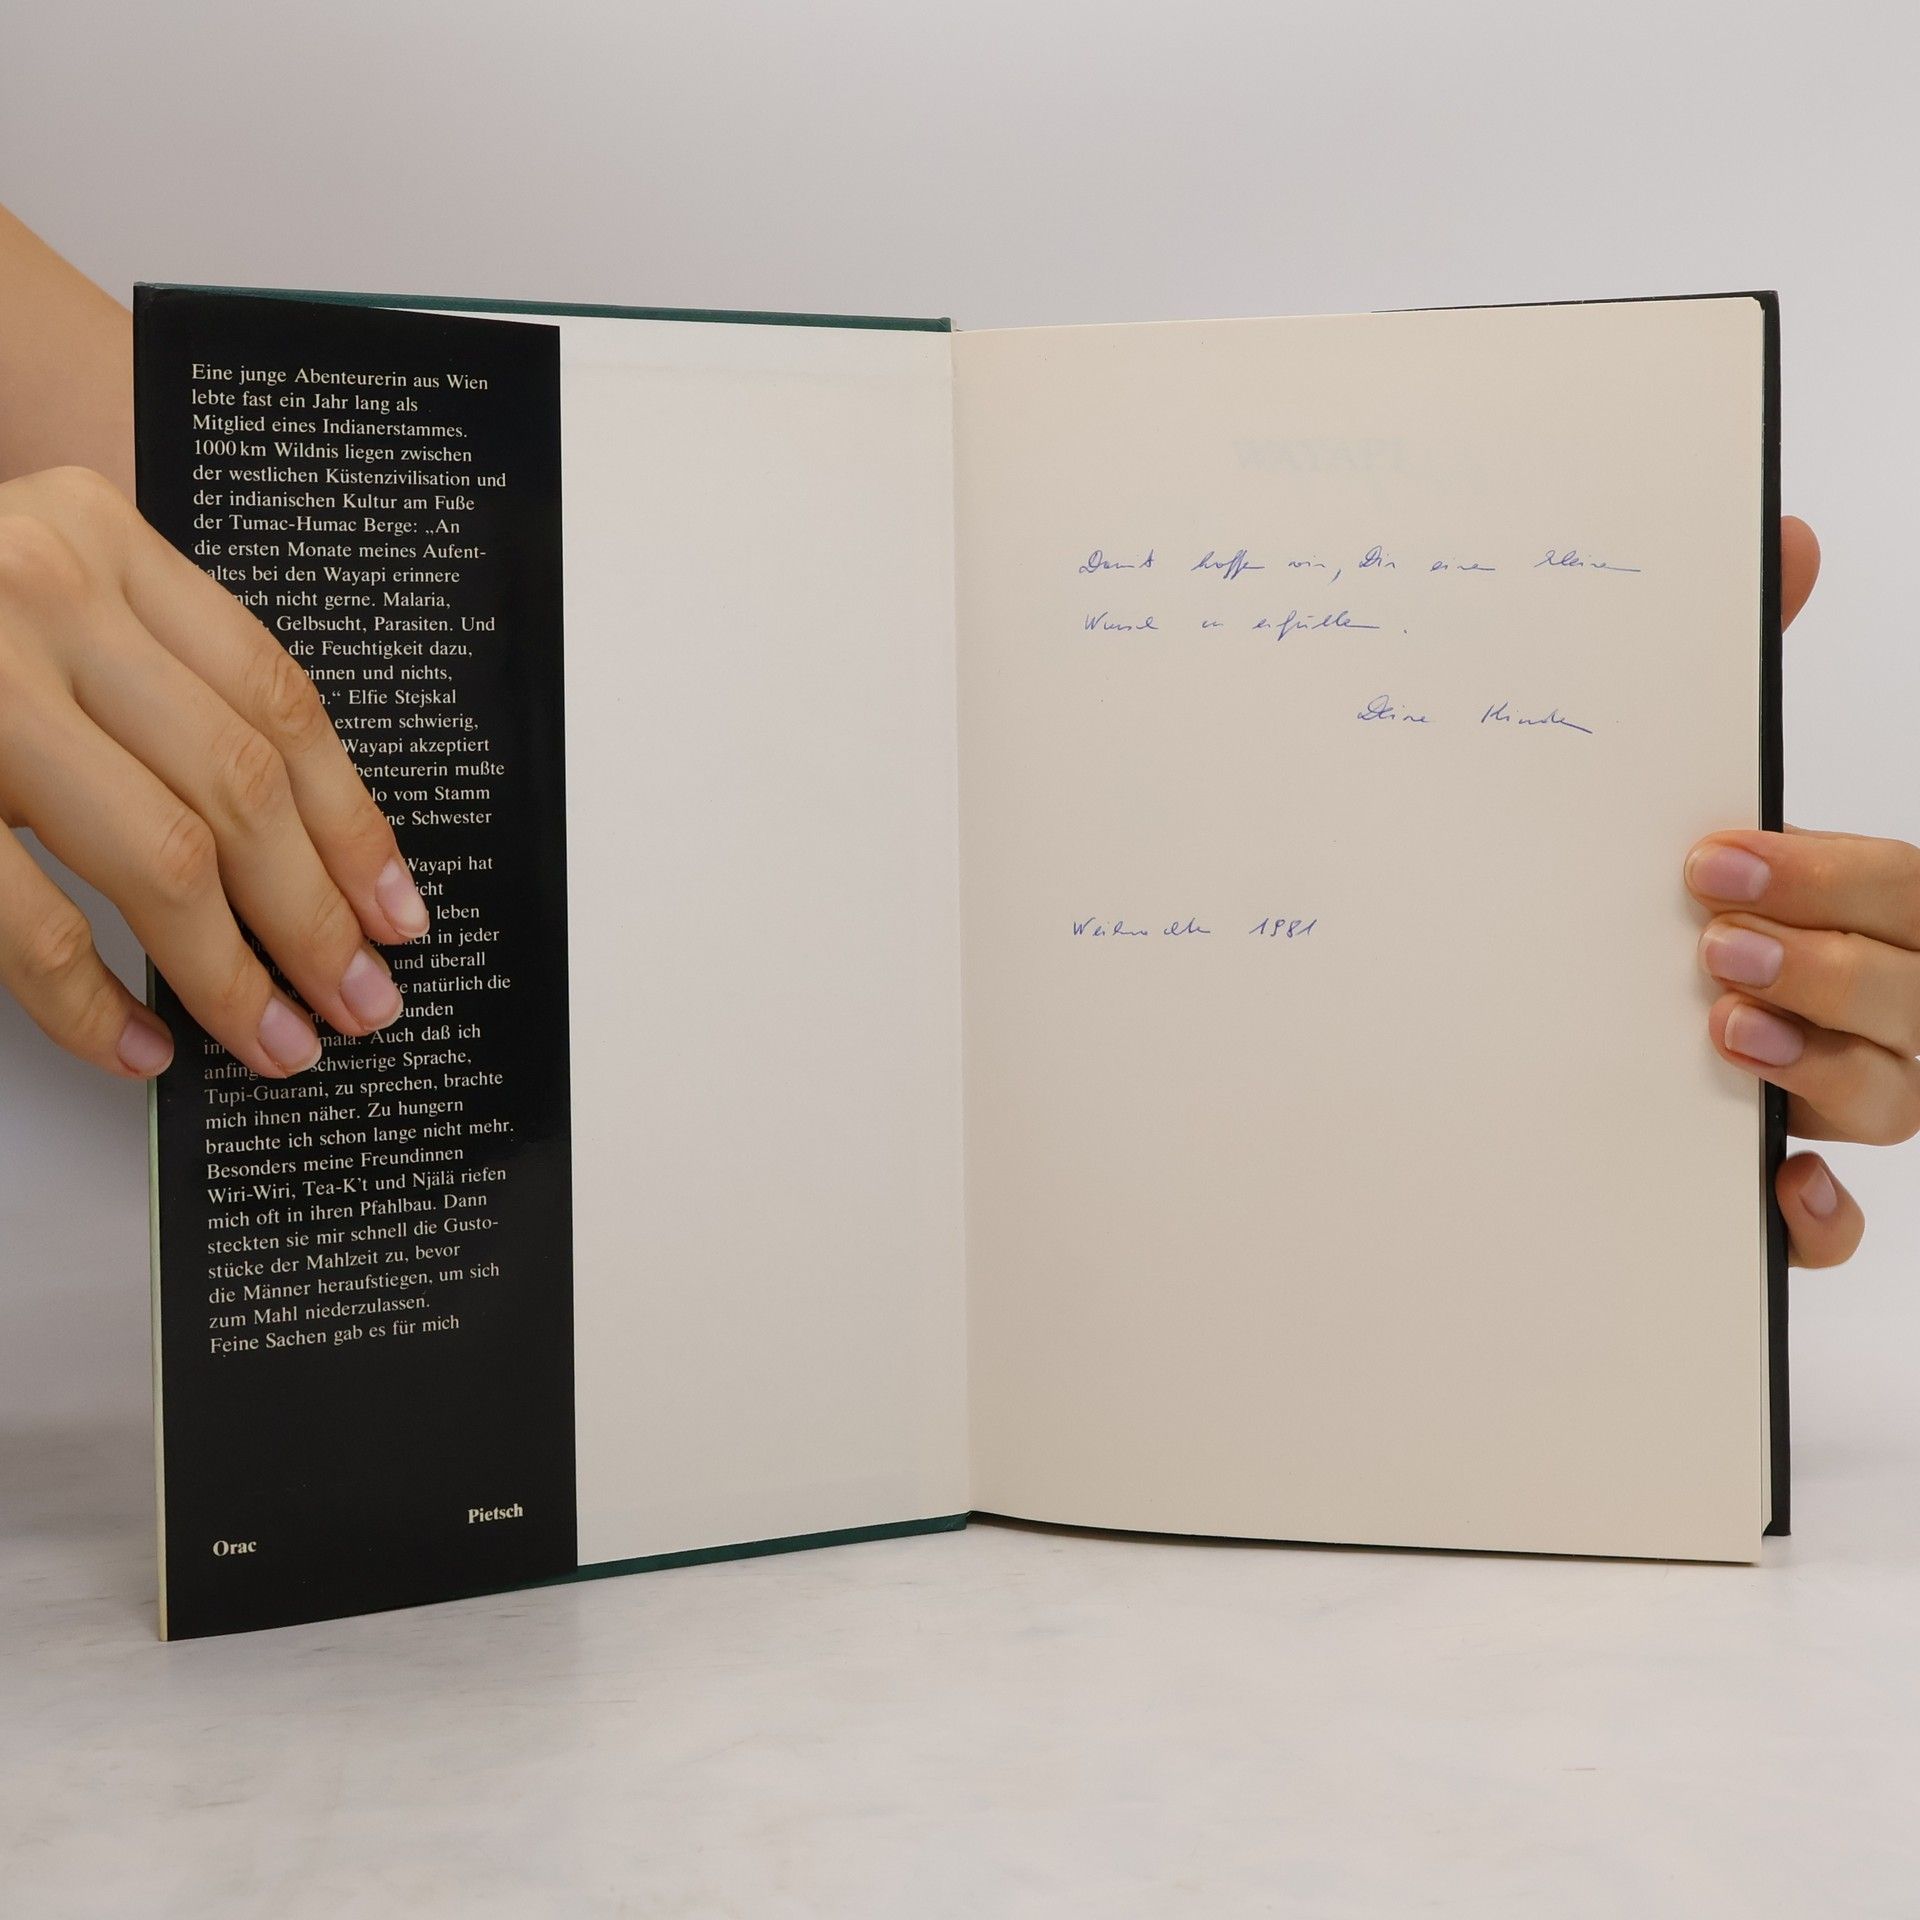 Eine junge Abenteurerin aus Wien
lebte fast ein Jahr lang als
Mitglied eines Indianerstammes.
1000 km Wildnis liegen zwischen
der westlichen Küstenzivilisation und
der indianischen Kultur am Fuße
der Tumac-Humac Berge: „An
die ersten Monate meines Aufent-
altes bei den Wayapi erinnere
mich nicht gerne. Malaria,
Gelbsucht, Parasiten. Und
die Feuchtigkeit dazu,
innen und nichts,
n.“ Elfie Stejskal
extrem schwierig,
Wayapi akzeptiert
benteurerin mußte
lo vom Stamm
ne Schwester
Wayapi hat
icht
leben
in jeder
und überall
te natürlich die
eunden
im mala. Auch daß ich
anfing schwierige Sprache,
Tupi-Guarani, zu sprechen, brachte
mich ihnen näher. Zu hungern
brauchte ich schon lange nicht mehr.
Besonders meine Freundinnen
Wiri-Wiri, Tea-K't und Njälä riefen
mich oft in ihren Pfahlbau. Dann
steckten sie mir schnell die Gusto-
stücke der Mahlzeit zu, bevor
die Männer heraufstiegen, um sich
zum Mahl niederzulassen.
Feine Sachen gab es für mich
Orac
Pietsch
WAYAPI
Damit hoffen wir, Dir einen kleinen
Wunsch zu erfüllen.
Deine Kinder
Weihnachten 1981